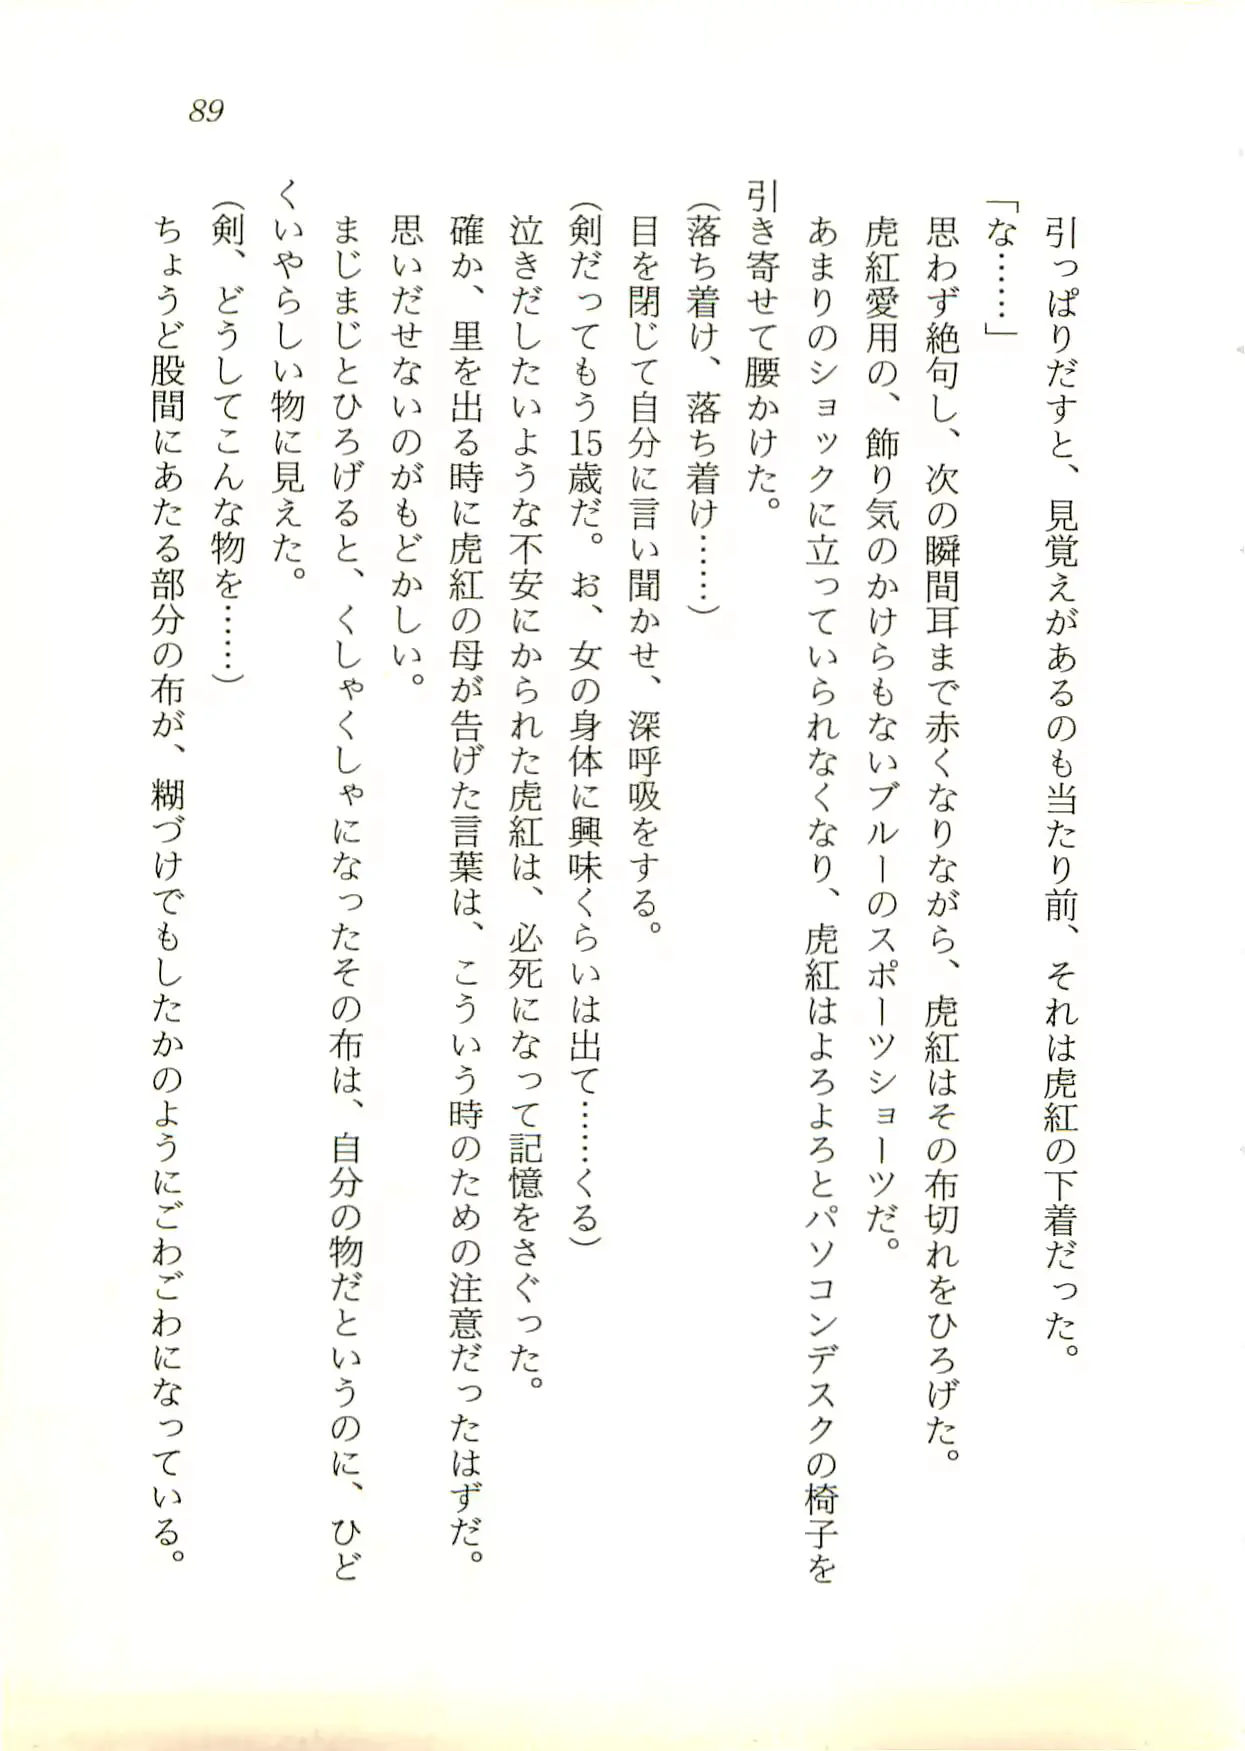 89
引っぱりだすと、見覚えがあるのも当たり前、それは虎紅の下着だった。
「な……」
思わず絶句し、次の瞬間耳まで赤くなりながら、虎紅はその布切れをひろげた。
虎紅愛用の、飾り気のかけらもないブルーのスポーツショーツだ。
あまりのショックに立っていられなくなり、虎紅はよろよろとパソコンデスクの椅子を
引き寄せて腰かけた。
(落ち着け、落ち着け……)
目を閉じて自分に言い聞かせ、深呼吸をする。
(剣だってもう15歳だ。お、女の身体に興味くらいは出て……くる)
泣きだしたいような不安にかられた虎紅は、必死になって記憶をさぐった。
確か、里を出る時に虎紅の母が告げた言葉は、こういう時のための注意だったはずだ。
思いだせないのがもどかしい。
まじまじとひろげると、くしゃくしゃになったその布は、自分の物だというのに、ひど
くいやらしい物に見えた。
(剣、どうしてこんな物を……)
ちょうど股間にあたる部分の布が、糊づけでもしたかのようにごわごわになっている。